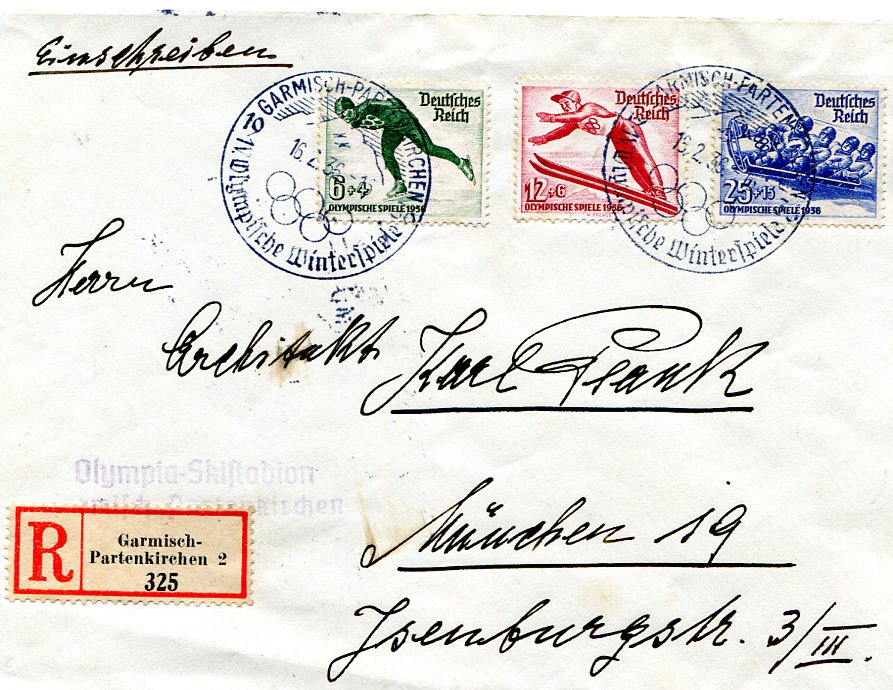 Einschreiben
GARMISCH-PARTENKIRCHEN
10
16.2.36
IV. Olympische Winterspiele
Deutsches
Reich
6+4
OLYMPISCHE SPIELE 1936
Deutsches
Reich
12+6
OLYMPISCHE SPIELE 1936
Deutsches
Reich
25+15
OLYMPISCHE SPIELE 1936
GARMISCH-PARTEN
16.2.36
Olympische Winterspiele
Herrn
Architekt Karl Plank
Olympia-Skistadion
misch-Partenkirchen
München 19
Isenburgstr. 3/III.
R
Garmisch-
Partenkirchen 2
325